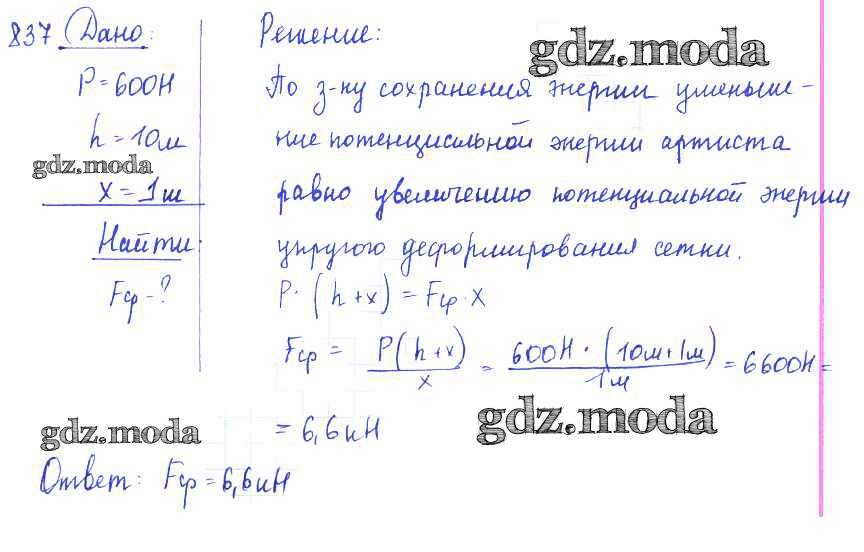 837 Дано:
P = 600Н
h = 10м
gdz.moda
x = 1м
Найти:
Fср - ?
Решение:
gdz.moda
По з-ну сохранения энергии уменьше-
ние потенциальной энергии артиста
равно увеличению потенциальной энергии
упругого деформирования сетки.
P · (h + x) = Fср · x
Fср = P(h+x)/x = 600Н · (10м + 1м)/1м = 6600Н =
= 6,6кН
gdz.moda
gdz.moda
Ответ: Fср = 6,6кН